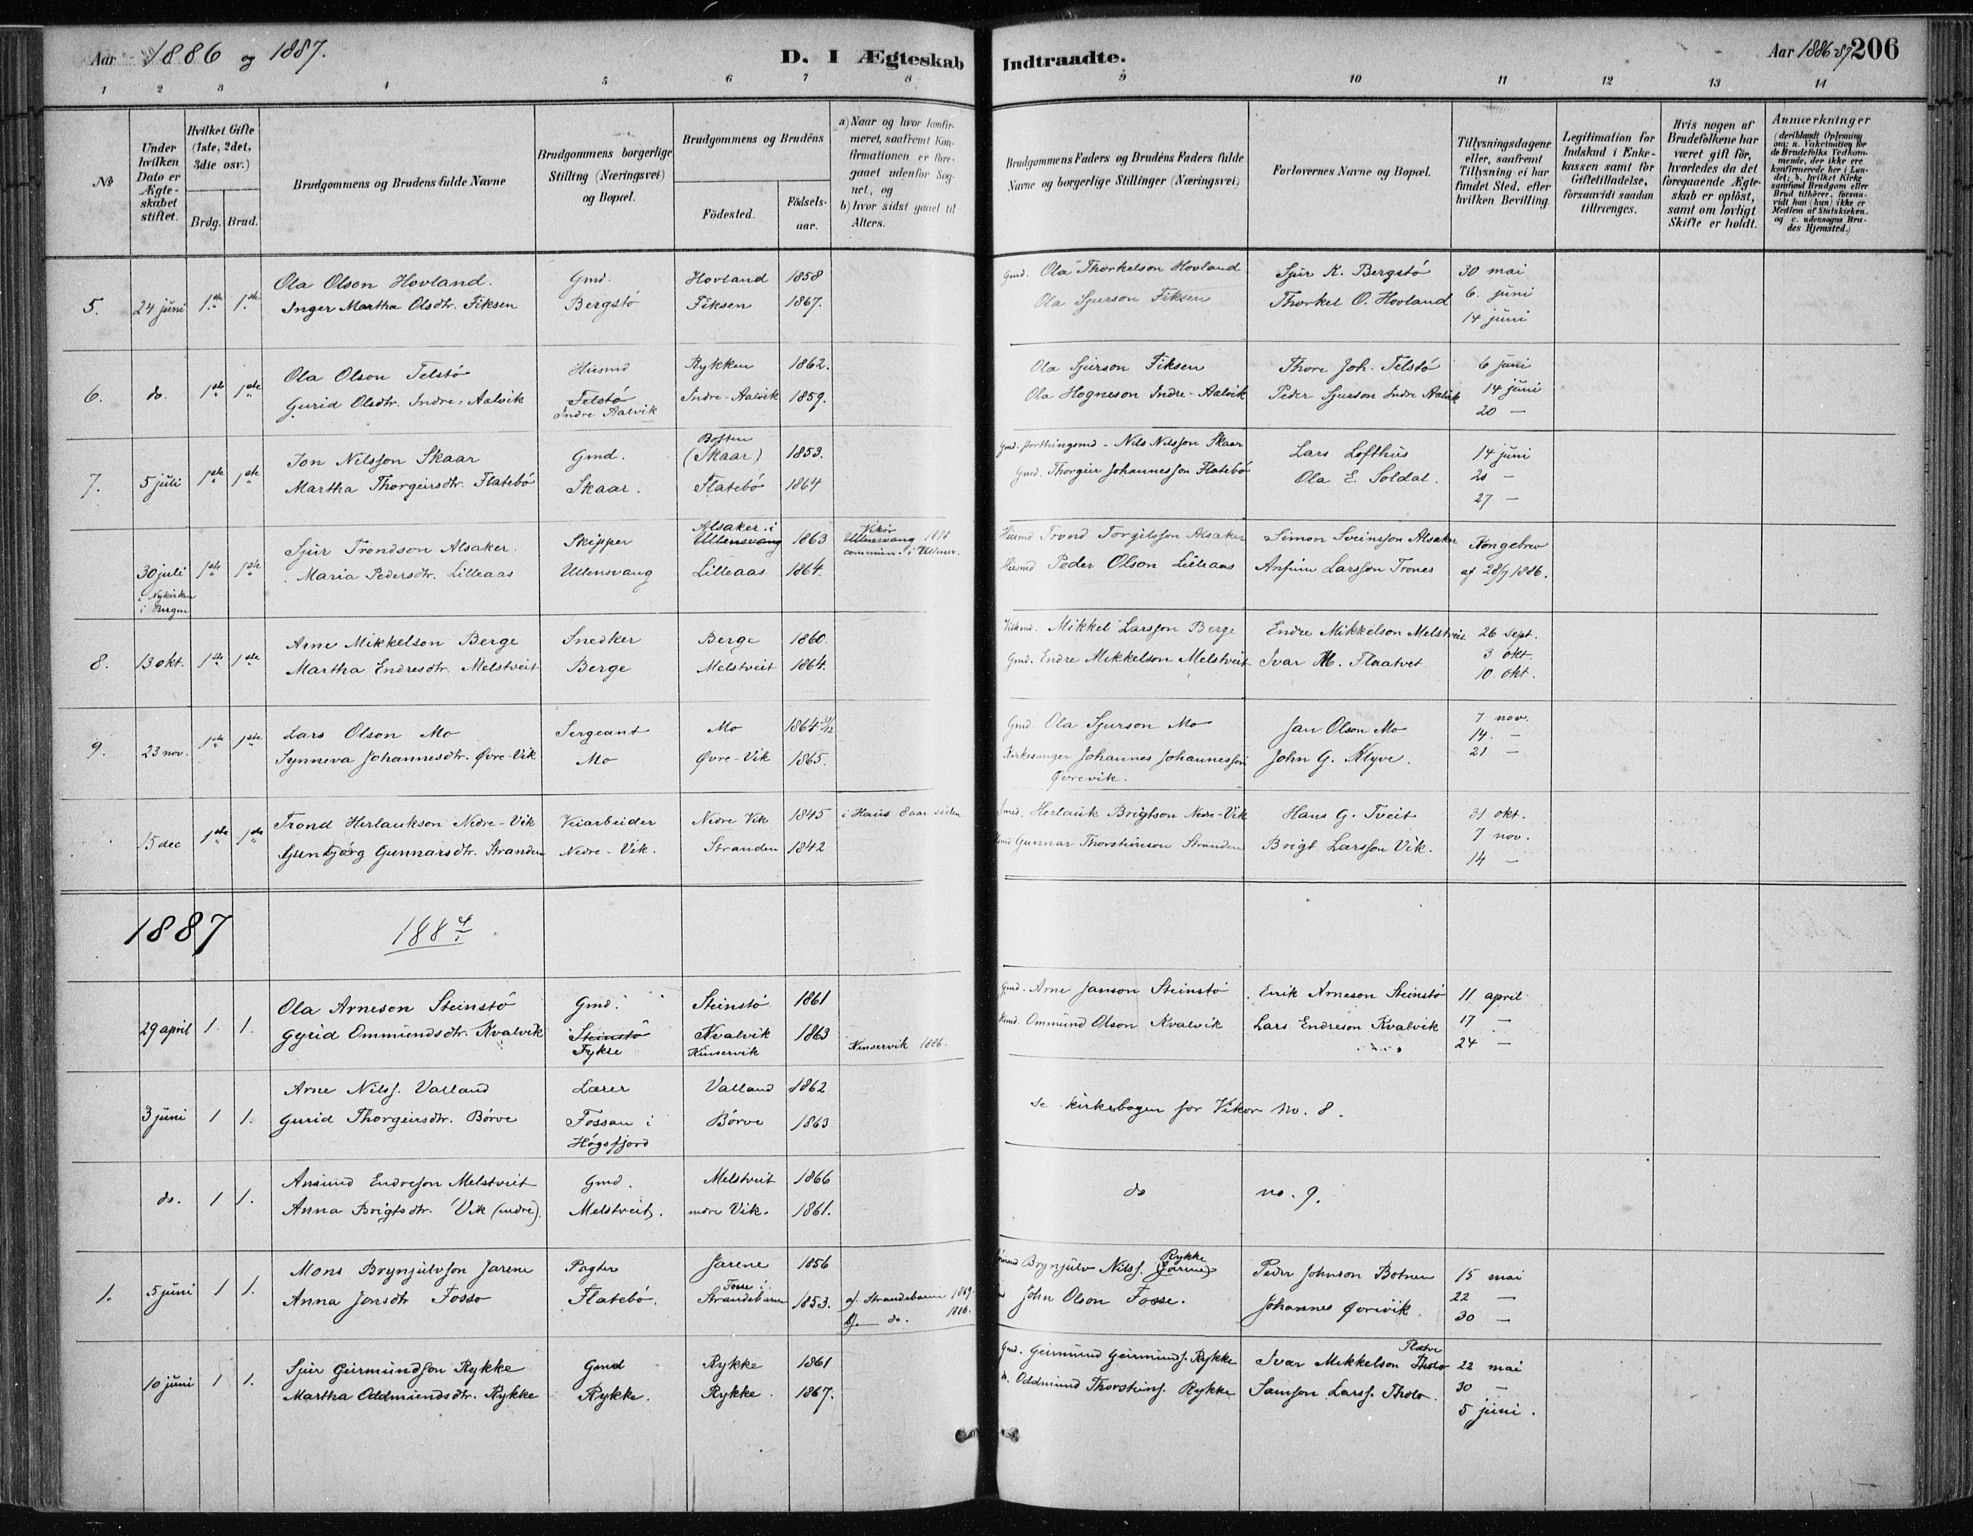 Aar 1886 og 1887.
D. I Ægteskab Indtraadte.
Aar 1886-87 206
1 2 3 4 5 6 7 8 9 10 11 12 13 14
No
Under hvilken Dato er Ægteskabet stiftet.
Hvilket Gifte (1ste, 2det, 3die osv.)
Brdg. Brud.
Brudgommens og Brudens fulde Navne
Brudgommens borgerlige Stilling (Næringsvei) og Bopæl.
Brudgommens og Brudens
Födested.
Födselsaar.
a) Naar og hvor konfirmeret, saafremt Konfirmationen er foregaaet udenfor Sognet, og
b) hvor sidst gaaet til Alters.
Brudgommens Faders og Brudens Faders fulde Navne og borgerlige Stillinger (Næringsvei)
Forlovernes Navne og Bopæl.
Tillysningsdagene eller, saafremt Tillysning ei har fundet Sted, efter hvilken Bevilling.
Legitimation for Indskud i Enkekassen samt for Giftetilladelse, forsaavidt saadan tiltrænges.
Hvis nogen af Brudefolkene har været gift för, hvorledes da det foregaaende Ægteskab er oplöst, samt om lovligt Skifte er holdt.
Anmærkninger (deriblandt Oplysning om: a. Vakcination for de Brudefolks Vedkommende, der ikke ere konfirmerede her i Landet; b. hvilket Kirkesamfund Brudgom eller Brud tilhörer, forsaavidt han (hun) ikke er Medlem af Statskirken, og c. udensogns Brudes Hjemsted.)
5. 24 juni 1ste 1ste Ola Olson Hovland. Gmd. Hovland 1858 Gmd. Ola Thorkelson Hovland Sjur K. Bergstø 30 mai
Inger Martha Olsdtr. Fiksen Bergstø Fiksen 1867. Ola Sjurson Fiksen Thorkel O. Hovland 6. juni
14 juni
6. do. 1ste 1ste Ola Olson Telstø Husmd Rykken 1862. Ola Sjurson Fiksen Thore Joh. Telstø 6 juni
Gurid Olsdtr. Indre-Aalvik Telstø Indre-Aalvik 1859. Ola Hogneson Indre-Aalvik Peder Sjurson Indre Aalvik 14 juni
Indre Aalvik 20 —
7. 5 juli 1ste 1ste Jon Nilsson Skaar Gmd. (Skaar) 1853. Gmd. Storthingsmd - Nils Nilsson Skaar Lars Lofthus 14 juni
Martha Thorgeirsdtr. Flatebø Skaar. Flatebø 1864 Gmd. Thorgier Johannesson Flatebø Ola E. Soldal. 20 —
27 —
30 juli i Nykirken i Bergen 1ste 1ste Sjur Trondson Alsaker. Skipper Alsaker i Ullensvang 1863 Vikør Ullensvang Husmd Trond Torgilsson Alsaker Simon Sveinsson Alsaker Kongebrev
Maria Pedersdtr. Lilleaas Ullensvang Lilleaas 1864. Husmd Peder Olson Lilleaas Anfinn Larsson Trones af 28/7 1886.
8. 13 okt. 1ste 1ste Arne Mikkelson Berge Snedker Berge 1860. Mikkel Larsson Berge Endre Mikkelson Melstveit 26 sept.
Martha Endresdtr. Melstveit Berge Melstveit 1864. Gmd. Endre Mikkelson Melstveit Ivar M. Flaatvet 3 okt.
10 okt.
9. 23 nov. 1ste 1ste Lars Olson Mo Sergeant Mo 1864 Gmd. Ola Sjurson Mo Jan Olson Mo 7 nov.
Synneva Johannesdtr. Øvre-Vik Mo Øvre-Vik 1865. Kirkesanger Johannes Johannesson Øvrevik. John G. Klyve. 14. —
21 —
15 dec 1ste 1ste Trond Herlaukson Nedre-Vik Veiarbeider Nedre Vik 1845 i Haus 8 aar siden Herlauk Brigtson Nedre-Vik Hans G. Tveit 31 okt.
Gunbjørg Gunnarsdtr. Stranden Nedre-Vik. Stranden 1842 Gunnar Thorsteinson Stranden Brigt Larsson Vik. 7 nov.
14 —
1887 188
29 april 1. 1. Ola Arneson Steinstø Gmd. Steinstø 1861 Gmd. Arne Janson Steinstø Eirik Arneson Steinstø 11 april
Gyrid Ommundsdtr. Kvalvik Steinstø Kvalvik 1863 Ommund Olson Kvalvik Lars Endreson Kvalvik 17 —
Fykse Kinservik Kinservik 1886. 24 —
3 juni 1 1. Arne Nilss. Valland Lærer Valland 1862 se kirkebogen for Vikør No. 8.
Gurid Thorgeirsdtr. Børve Fossan i Børve 1863
Høgsfjord
do. 1 1. Amund Endreson Melstveit Gmd. Melstveit 1866 do no. 9.
Anna Brigtsdtr. Vik (nedre). Melstveit. nedre Vik. 1861.
1. 5 juni 1 1. Mons Brynjulvson Jarene Pagter Jarene 1856 Brynjulv Nilss. Rykke (Jarene) Peder Johnson Botnen 15 mai
Anna Jonsdtr Fosso Flatebø. Fosse i Strandebarm 1853. a) Strandebarm 1869. John Olson Fosse. Johannes Øvrevik. 22 —
b) — do. 1886. 30 —
10 juni 1 1. Sjur Geirmundson Rykke Gmd Rykke 1861 Gmd. Geirmund Geirmunds. Rykke Ivar Mikkelson 22 mai
Martha Oddmundsdtr. Rykke Rykke. Rykke. 1867. Oddmund Thorsteins. Rykke Samson Larss. Tholo. 30 —
5 juni.